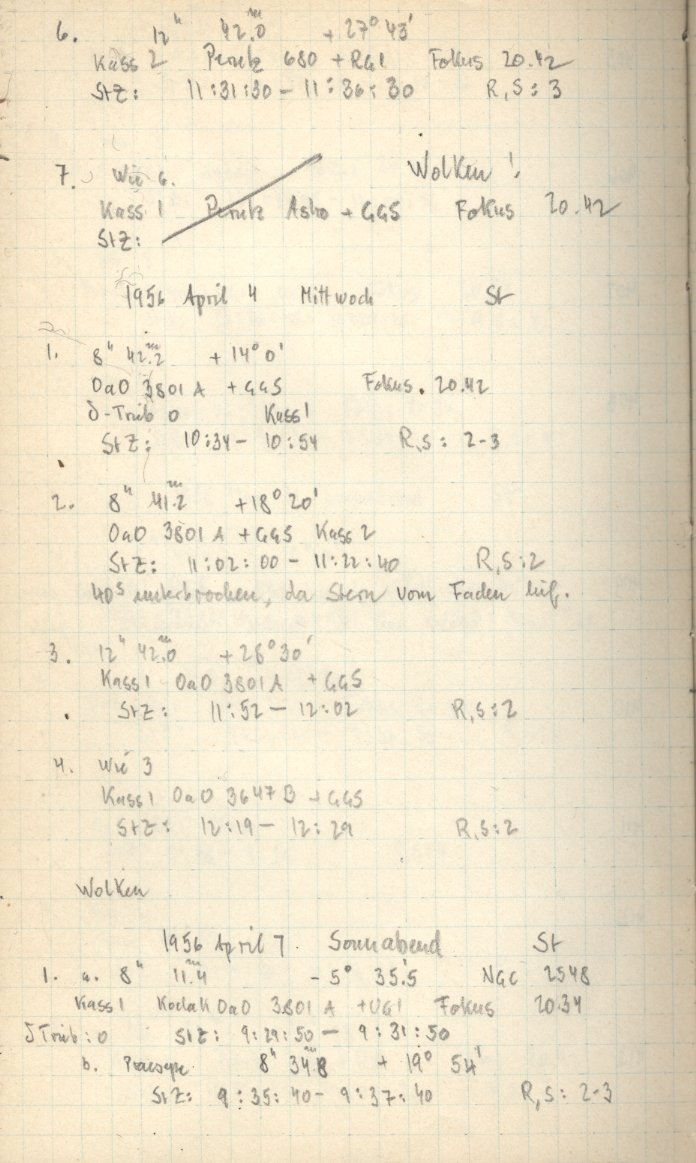 6. 12ʰ 42ᵐ.0 +27° 43'
Kass 2 Perutz 680 + RG1 Fokus 20.42
StZ: 11:31:30 – 11:36:30 R,S: 3
7. Wie 6. Wolken!
Kass 1 Perutz Astro + GG5 Fokus 20.42
StZ:
1956 April 4 Mittwoch St
1. 8ʰ 42ᵐ.2 +14° 0'
OaO 3801 A + GG5 Fokus. 20.42
δ-Trieb 0 Kass 1
StZ: 10:34 – 10:54 R,S: 2-3
2. 8ʰ 41ᵐ.2 +18° 20'
OaO 3801 A + GG5 Kass 2
StZ: 11:02:00 – 11:22:40 R,S: 2
40ˢ unterbrochen, da Stern vom Faden lief.
3. 12ʰ 42ᵐ.0 +26° 30'
Kass 1 OaO 3801 A + GG5
StZ: 11:52 – 12:02 R,S: 2
4. Wie 3
Kass 1 OaO 3647 B + GG5
StZ: 12:19 – 12:29 R,S: 2
Wolken
1956 April 7. Sonnabend St
1. a. 8ʰ 11ᵐ.4 -5° 35'.5 NGC 2548
Kass 1 Kodak OaO 3801 A + UG1 Fokus 20.34
δ Trieb: 0 StZ: 9:29:50 – 9:31:50
b. Praesepe 8ʰ 34ᵐ.8 + 19° 54'
StZ: 9:35:40 – 9:37:40 R,S: 2-3